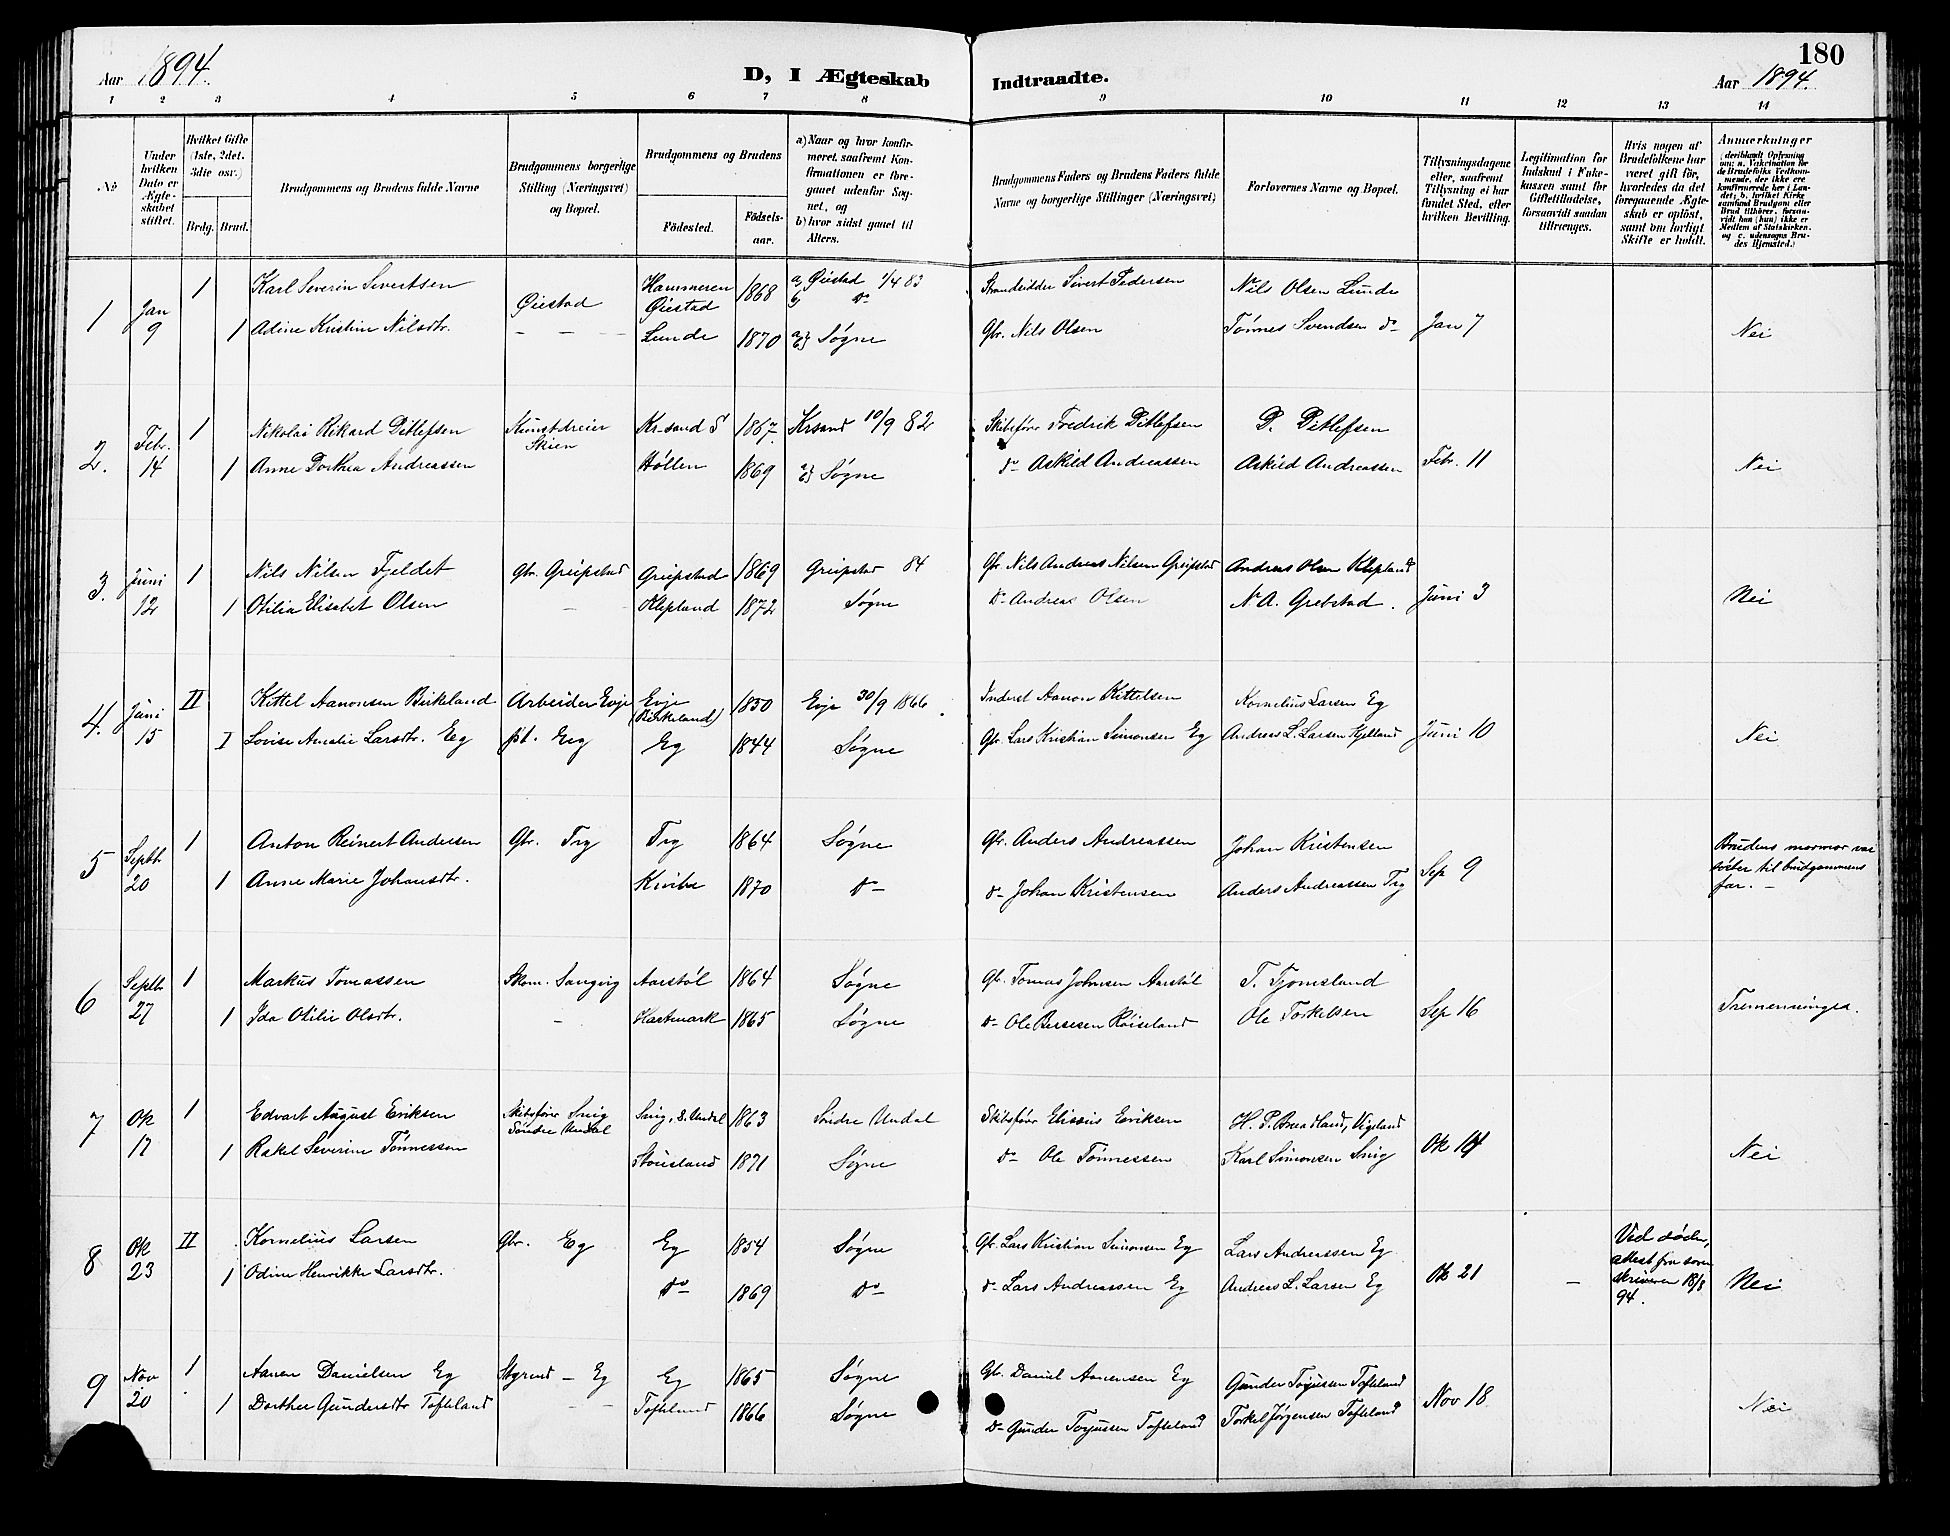 180
Aar 1894.
D, I Ægteskab Indtraadte.
Aar 1894.
1 2 3 4 5 6 7 8 9 10 11 12 13 14
No
Under hvilken Dato er Ægteskabet stiftet.
Hvilket Gifte (1ste, 2det, 3die osv.)
Brdg. Brud.
Brudgommens og Brudens fulde Navne
Brudgommens borgerlige Stilling (Næringsvei) og Bopæl.
Brudgommens og Brudens
Födested.
Födsels-aar.
a) Naar og hvor konfirmeret, saafremt Konfirmationen er foregaaet udenfor Sognet, og
b) hvor sidst gaaet til Alters.
Brudgommens Faders og Brudens Faders fulde Navne og borgerlige Stillinger (Næringsvei)
Forlovernes Navne og Bopæl.
Tillysningsdagene eller, saafremt Tillysning ei har fundet Sted, efter hvilken Bevilling.
Legitimation for Indskud i Enkekassen samt for Giftetilladelse, forsaavidt saadan tiltrænges.
Hvis nogen af Brudefolkene har været gift för, hvorledes da det foregaaende Ægteskab er oplöst, samt om lovligt Skifte er holdt.
Anmærkninger
1 Jan 9 1 Karl Severin Sivertsen Øiestad Hammeren Øiestad 1868 a) Øiestad 1/4 83 b) do Strandsidder Sivert Pedersen Nils Olsen Lunde
1 Adine Kristine Nilsdtr. — — — Lunde 1870 a) b) Søgne Gbr. Nils Olsen Tønnes Svendsen do Jan 7 Nei
2. Febr. 14 1 Nikolai Rikard Ditlefsen Kunstdreier Skien Kr-sand S 1867 Krsand 10/9 82 Skibsfører Fredrik Ditlefsen D. Ditlefsen
1 Anne Dorthea Andreassen Høllen 1869 a) b) Søgne do Askild Andreassen Askild Andreassen Febr. 11 Nei
3. Juni 12 1 Nils Nilsen Fjeldet Gbr. Greipstad Greipstad 1869 Greipstad 84 Gbr. Nils Andreas Nilsen Greipstad Andreas Olsen Klepland
1 Otilia Elisabet Olsen — — Klepland 1872 Søgne do Andreas Olsen N. A. Grebstad. Juni 3 Nei
4. Juni 15 II Kittel Aanonsen Birkeland Arbeider Evje Evje (Birkeland) 1850 Evje 30/9 1866 Inderst Aanon Kittelsen Kornelius Larsen Eg
I Lovise Amalie Larsdtr. Eg Eg Eg 1844 Søgne Gbr. Lars Kristian Simonsen Eg Andreas L. Larsen Juni 10 Nei
5 Septb. 20 1 Anton Reinert Andersen Gbr. Try Try 1864 Søgne Gbr. Anders Andreassen Johan Kristensen Brudens mormor var søster til brudgommens far. —
1 Anne Marie Johansdtr. 1870 do do Johan Kristensen Anders Andreassen Try Sep 9
6 Septbr 27 1 Markus Tomassen Skom. Langvig Aarstøl 1864 Søgne Gbr. Tomas Johnsen Aarstøl T. Tjomsland
1 Ida Otilie Olsdtr. — Hartmark 1865 Søgne do Ole Beresen Røiseland Ole Torkelsen Sep 16 Tremenninger.
7 Ok 17 1 Edvart August Eriksen Skibsfører Snig Søndre Undal Snig, S. Undal 1863 Søndre Undal Skibsfører Elisæus Eriksen H. P. Vigeland
1 Rakel Severine Tønnessen Stousland 1871 Søgne do Ole Tønnessen Karl Simonsen Snig Ok 14 Nei
8 Ok 23 II Kornelius Larsen Gbr. Eg Eg 1854 Søgne Gbr. Lars Kristian Simonsen Eg Lars Andreassen Eg Ved døden, attest fra sorenskriveren 18/8 94.
1 Odine Henrikke Larsdtr. do 1869 do do Lars Andreassen Eg Andreas L. Larsen Eg Ok 21 — Nei
9 Nov 20 1 Aanon Danielsen Eg Styrmd — Eg Eg 1865 Søgne Gbr. Daniel Aanensen Eg Gunder Torjussen Tofteland
1 Dorthee Gundersdtr Tofteland — — Tofteland 1866 Søgne do Gunder Torjussen Tofteland Torkel Jørgensen Tofteland Nov 18 Nei